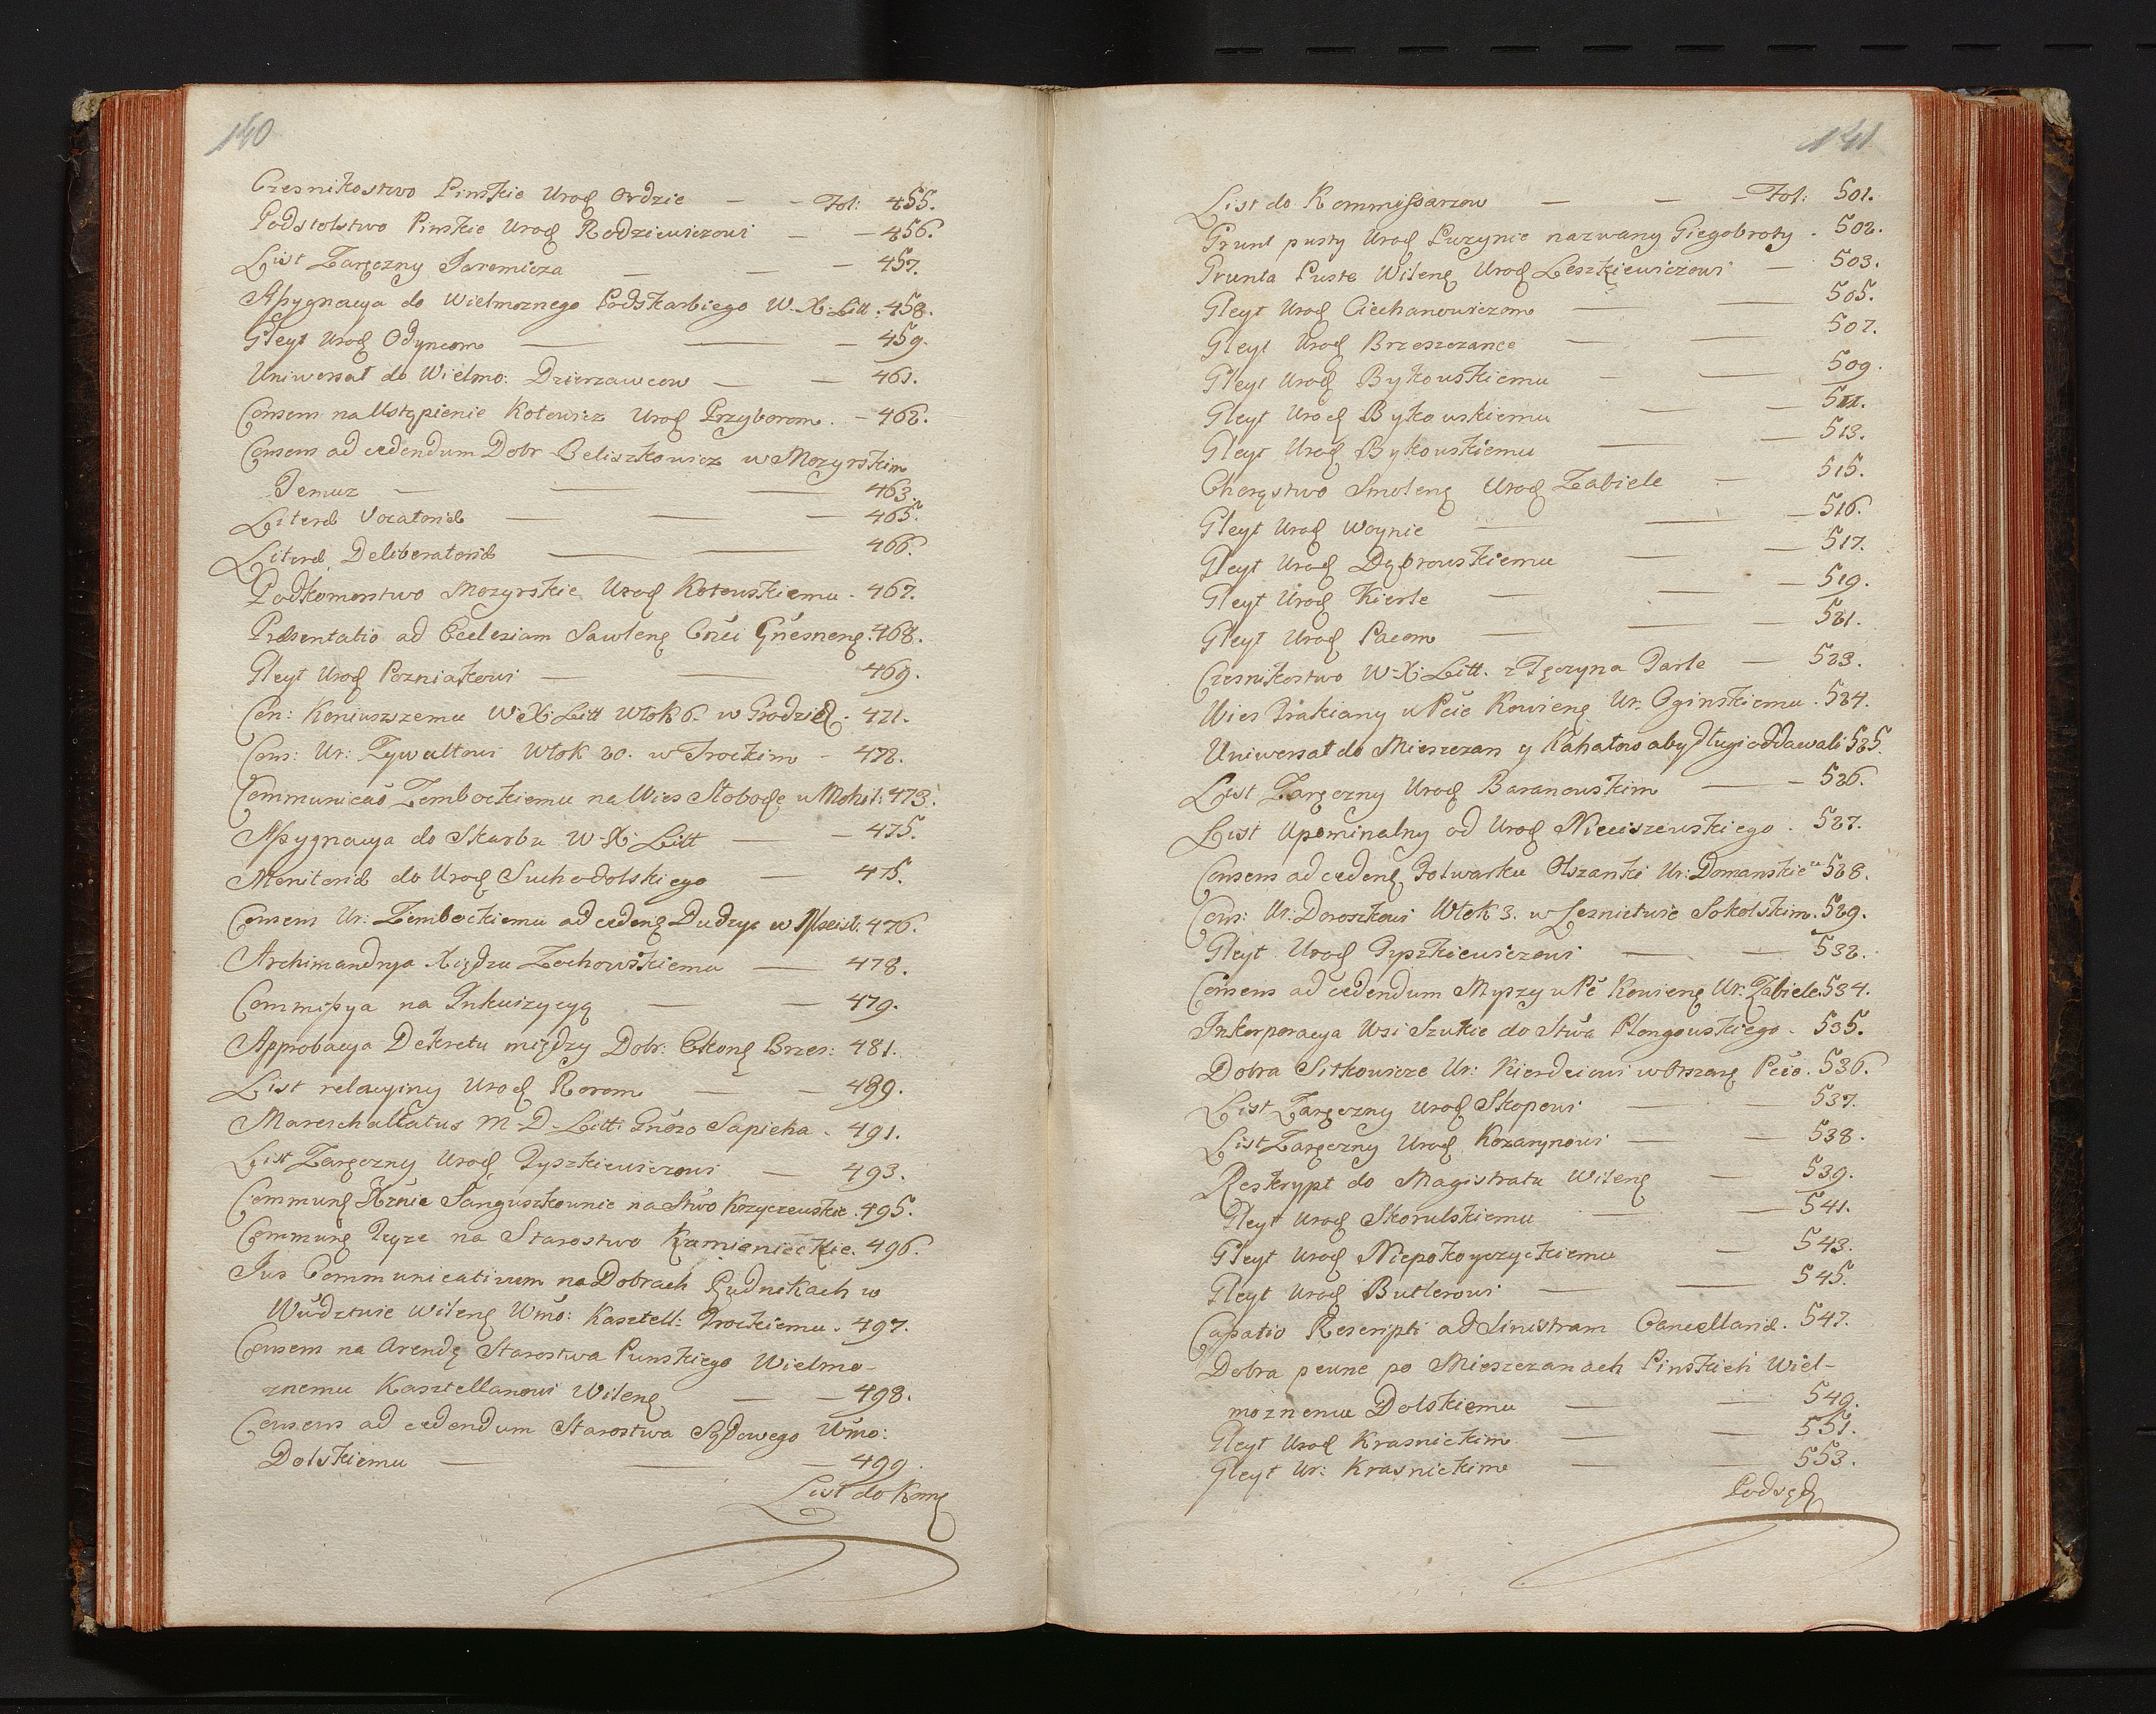 140
Czesnikostwo Pinskie Urod Ordzie — - Fol: 455.
Podstolstwo Pinskie Urod Rodziewiczowi — — 456.
List Zaręczny Jaremicza — — — 457.
Assygnacya do Wielmoznego Podskarbiego W. X. Litt. 458.
Gleyt Urod Odyncom — — — 459.
Uniwersał do Wielmo: Dzierzawcow — — 461.
Consens na Ustąpienie Kotowicz Urod Przyborom. — 462.
Consens ad cedendum Dobr Beliszkowicz w Mozyrskim
Jemuz — — — 463.
Literæ Vocatoriæ — — — 465.
Literæ Deliberatoriæ — — 466.
Podkomorstwo Mozyrskie Urod Kotowskiemu. 467.
Præsentatio ad Ecclesiam Sawlenę 468.
Gleyt Urod Pozniakowi — — 469.
Con: Koniuszemu W. X. Litt Włok 6. w Grodzię. 471.
Cons: Ur: Zywultowi Włok 20. w Trockim - 472.
Communicaõ Zembockiemu na Wies Słobodę w Mohil: 473.
Assygnacya do Skarbu W. X. Litt — — 475.
Monitoriæ do Urod Suchodolskiego — 475.
Consens Ur: Zembockiemu ad cedenę Dudzye w 476.
Archimandrya Xiędzu Zochowskiemu — 478.
Commissya na Inkwizycyą — — 479.
Approbacya Dekretu między Dobr: Ekonę Brzes: 481.
List relacyiny Urod Rorom — — 489.
Mareschallatus M. D. Litt: Gnõzo Sapieha. 491.
List Zaręczny Urod Tyszkiewiczowi — 493.
Communę Xznie Sanguszkownie na Stwo Krzyczewskie. 495.
Communę Teyze na Starostwo Kamienieckie. 496.
Jus Communicativum na Dobrach Rudnikach w
Wudztwie Wilenę Wmo: Kasztell: Trockiemu. 497.
Consens na Arendę Starostwa Punskiego Wielmo-
znemu Kasztellanowi Wilenę — — 498.
Consens ad cedendum Starostwa Sądowego Wmo:
Dolskiemu — — — 499.
List do Komę
141
List do Kommissarzow — — — Fol: 501.
Grunt pusty Urod Puzynie nazwany Giegobrosty. 502.
Grunta Puste Wilenę Urod Leszkiewiczowi — 503.
Gleyt Urod Ciechanowiczom — — 505.
Gleyt Urod Brzeszczance — — 507.
Gleyt Urod Bykowskiemu - — 509.
Gleyt Urod Bykowskiemu — — 511.
Gleyt Urod Bykowskiemu — — 513.
Chorąstwo Smolenę Urod Zabiele — 515.
Gleyt Urod Woynie — — — 516.
Gleyt Urod Dąbrowskiemu — — 517.
Gleyt Urod Kierle — — — 519.
Gleyt Urod Pacom — — — 521.
Czesnikostwo W. X. Litt. z Tęczyna Parle — 523.
Wies Trakiany w Pcie Kowienę Ur. Oginskiemu. 524.
Uniwersał do Mieszczan y Kahałow aby Długi oddawali 525.
List Zaręczny Urod Baranowskim — — 526.
List Upominalny od Urod Nieciszewskiego. 527.
Consens ad cedenę Folwarku Olszanki Ur: Domanskie 528.
Cons: Ur: Doroszkowi Włok 3. w Lesnictwie Sokolskim. 529.
Gleyt Urod Tyszkiewiczowi — — 532.
Consens ad cedendum Myszy w Pc Kowienę Ur: Zabiele. 534.
Inkorporacya Wsi Szukie do Stwa Plongowskiego. 535.
Dobra Sitkowicze Ur: Kierdeiowi w Orszanę Pcie. 536.
List Zaręczny Urod Skopowi — — 537.
List Zaręczny Urod Kozarynowi — — 538.
Reskrypt do Magistratu Wilenę — 539.
Gleyt Urod Skorulskiemu — — 541.
Gleyt Urod Niepokoyczyckiemu — 543.
Gleyt Urod Butlerowi — — 545.
Casatio Rescripti ad Sinistram Cancellariæ. 547.
Dobra pewne po Mieszczanach Pinskich Wiel-
moznemu Dolskiemu — — 549.
Gleyt Urod Krasnickim — — 551.
Gleyt Ur: Krasnickim — — 553.
Podsęd